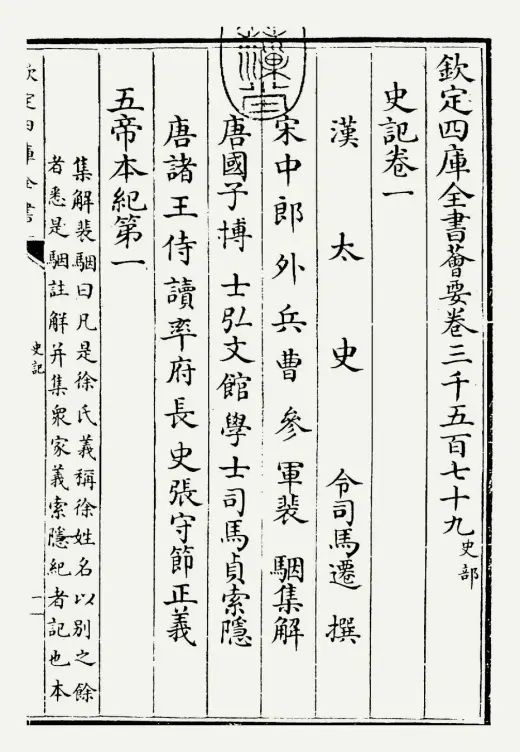 欽定四庫全書薈要卷三千五百七十九史部
史記卷一
漢太史令司馬遷撰
宋中郎外兵曹參軍裴駰集解
唐國子博士弘文館學士司馬貞索隱
唐諸王侍讀率府長史張守節正義
五帝本紀第一
集解裴駰曰凡是徐氏義稱徐姓名以别之餘
者悉是駰註解并集衆家義索隱紀者記也本
欽定四庫全書
史記
一